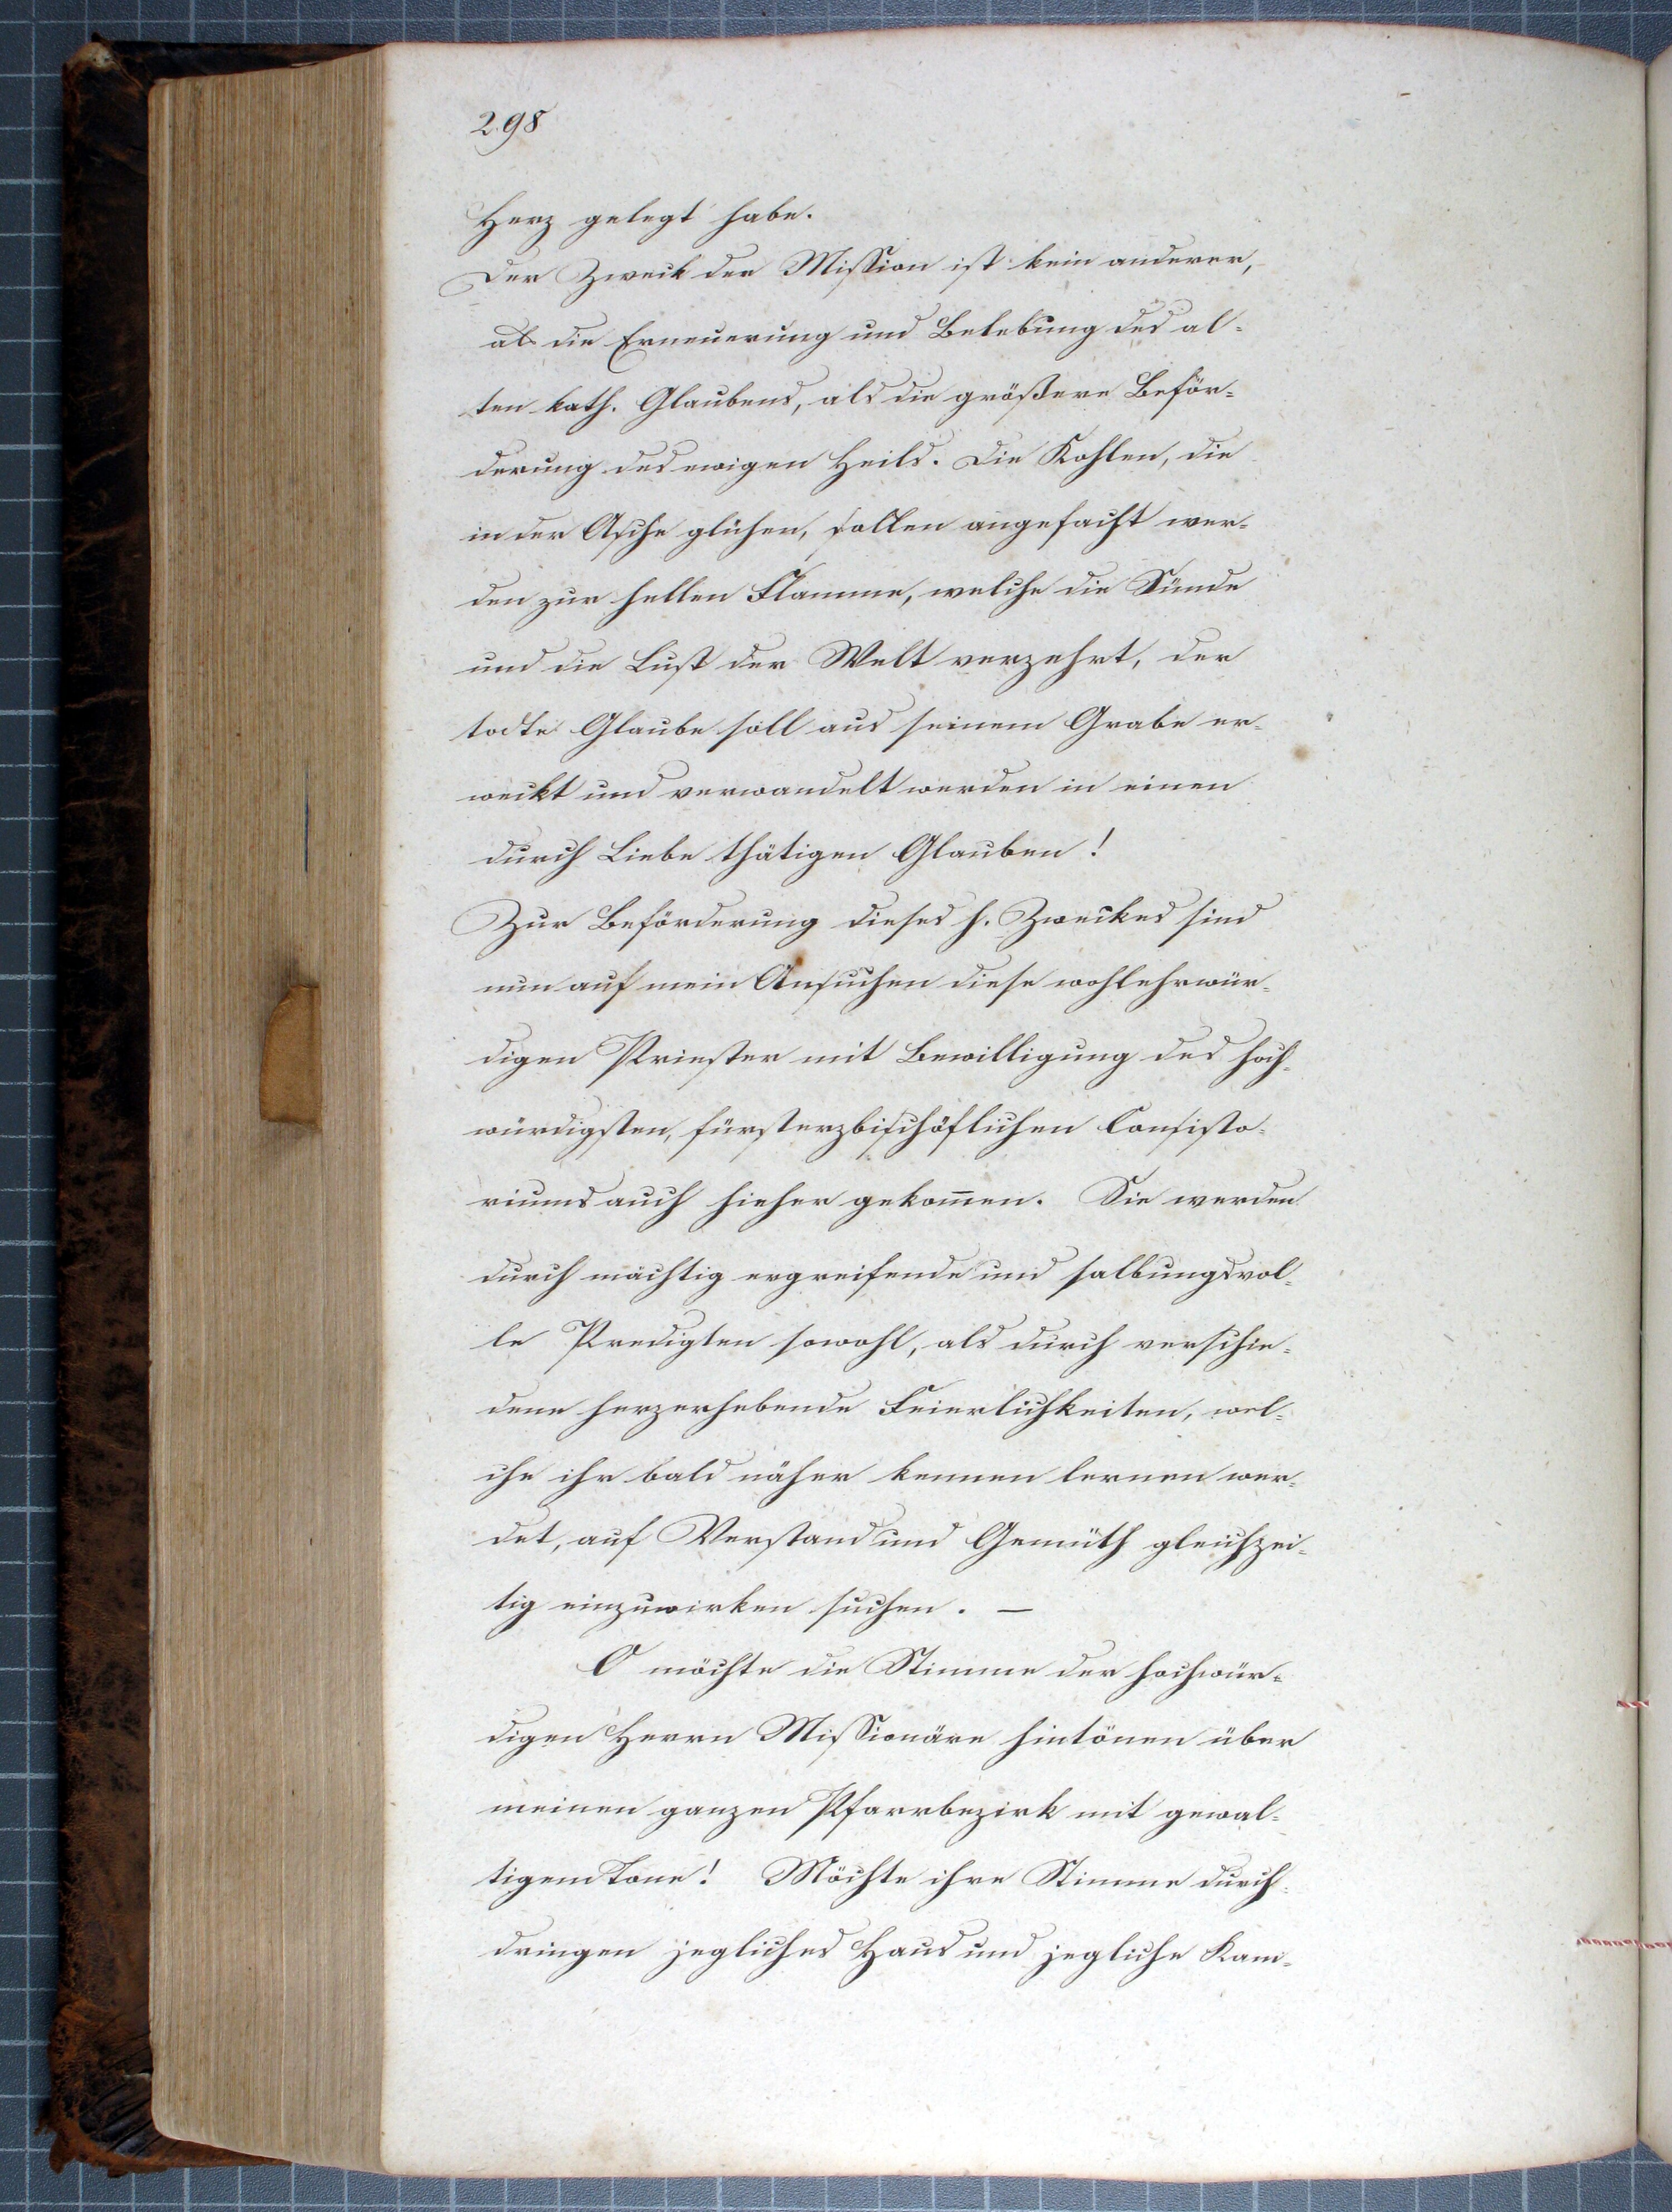 298
Herz gelegt habe.
Der Zweck der Mission ist kein anderer,
als die Erneuerung und Belebung des al-
ten kath. Glaubens, als die größere Beför-
derung des ewigen Heils. Die Kohlen, die
in der Asche glühen, sollen angefacht wer-
den zur hellen Flamme, welche die Sünde
und die Lust der Welt verzehrt, der
todte Glaube soll aus seinem Grabe er-
weckt und verwandelt werden in einen
durch Liebe thätigen Glauben!
Zur Beförderung dieses h. Zweckes sind
nun auf mein Ansuchen diese wohlehrwür-
digen Priester mit Bewilligung des hoch-
würdigsten, fürsterzbischöflichen Consisto-
riums auch hieher gekom̅en. Sie werden
durch mächtig ergreifende und salbungsvol-
le Predigten sowohl, als durch verschie-
dene herzerhebende Feierlichkeiten, wel-
che ihr bald näher kennen lernen wer-
det, auf Verstand und Gemüth gleichzei-
tig einzuwirken suchen. —
O möchte die Stimme der hochwür-
digen Herrn Missionäre hintönen über
meinen ganzen Pfarrbezirk mit gewal-
tigem Tone! Möchte ihre Stimme durch-
dringen jegliches Haus und jegliche Kam-